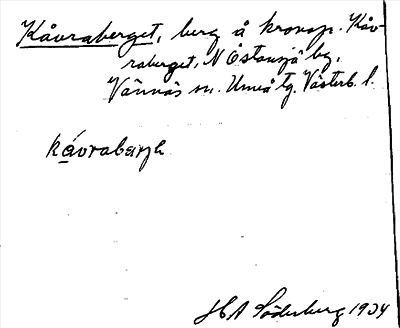 Kåvraberget, berg å kronop. Kåv-
raberget, N Östansjö by,
Vännäs sn. Umeå tg. Västerb. l.
kåvrabærjə
HA Söderberg 1934